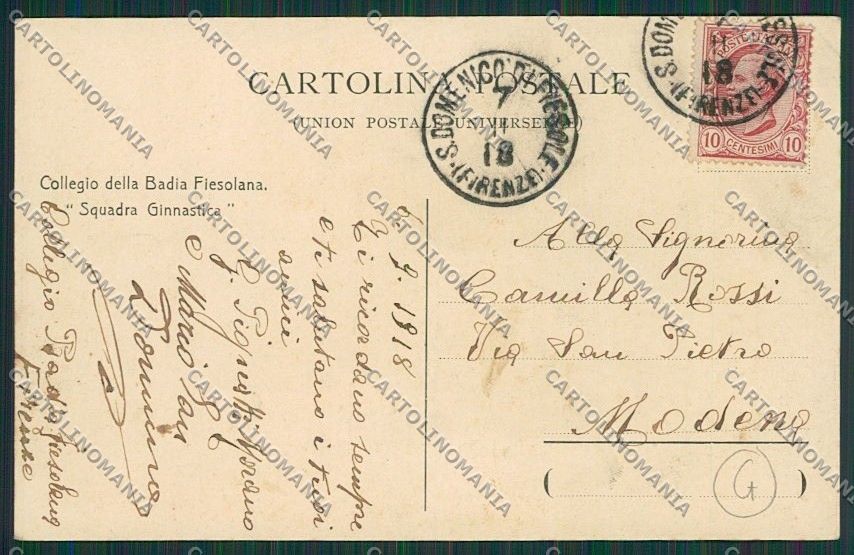 CARTOLINA POSTALE
(UNION POSTALE UNIVERSELLE)
S. DOMENICO DI FIESOLE
7
11
18
(FIRENZE)
S. DOMENICO DI FIESOLE
11
18
(FIRENZE)
POSTE ITALIANE
10 CENTESIMI 10
Collegio della Badia Fiesolana.
" Squadra Ginnastica "
1918
Ti ricordano sempre
e ti salutano i tuoi
amici
e Mario
Collegio Badia Fiesolana
Firenze
Alla Signorina
Camilla Rossi
Via San Pietro
Modena
( )
G
CARTOLINOMANIA